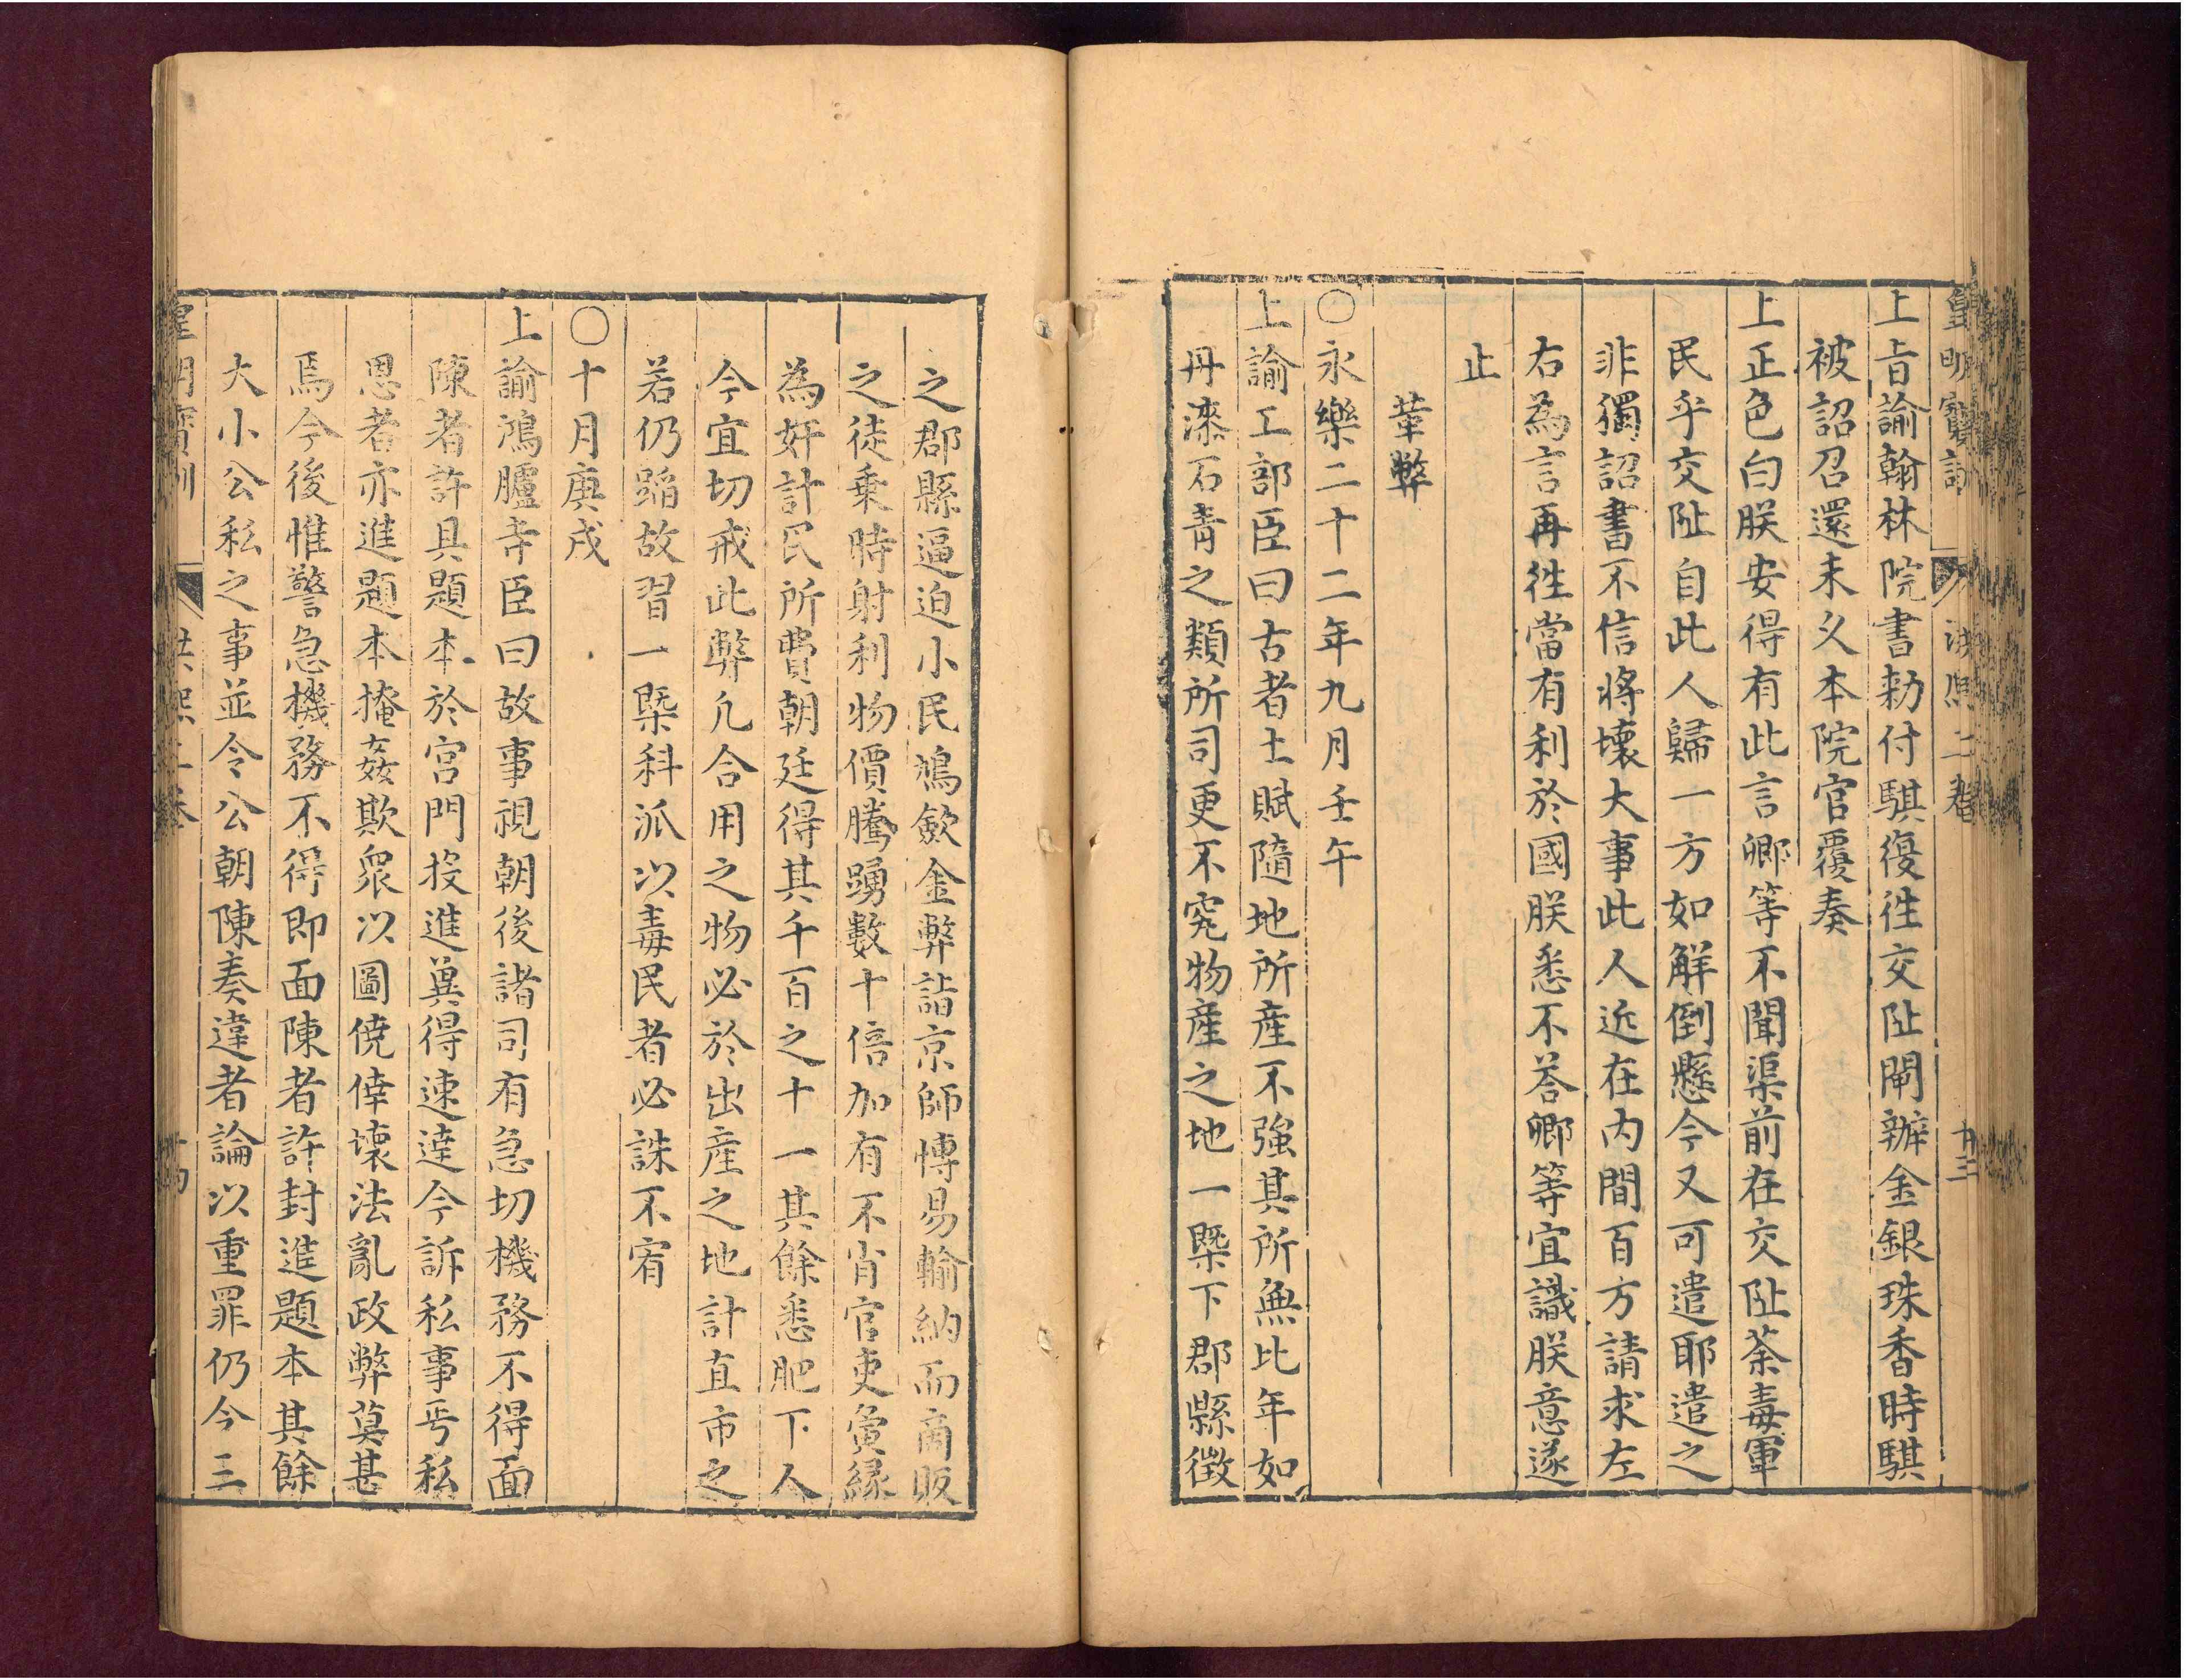 皇明寶訓 洪熙二卷 十三
上旨諭翰林院書勑付騏復徃交阯閘辦金銀珠香時騏
被詔召還未久本院官覆奏
上正色曰朕安得有此言卿等不聞渠前在交阯荼毒軍
民乎交阯自此人歸一方如解倒懸今又可遣耶遣之
非獨詔書不信將壞大事此人近在內間百方請求左
右為言再徃當有利於國朕悉不荅卿等宜識朕意遂
止
革弊
○永樂二十二年九月壬午
上諭工部臣曰古者土賦隨地所産不強其所無比年如
丹漆石青之類所司更不究物産之地一槩下郡縣徵
之郡縣逼迫小民鳩歛金弊詣京師愽易輸納而商販
之徒乗時射利物價騰踴數十倍加有不肖官吏夤縁
為奸計民所費朝廷得其千百之十一其餘悉肥下人
今宜切戒此弊凢合用之物必於出産之地計直市之
若仍蹈故習一槩科派以毒民者必誅不宥
○十月庚戌
上諭鴻臚寺臣曰故事視朝後諸司有急切機務不得面
陳者許具題本於宮門投進冀得速達今訴私事丐私
恩者亦進題本掩姦欺衆以圖僥倖壞法亂政弊莫甚
焉今後惟警急機務不得即面陳者許封進題本其餘
大小公私之事並令公朝陳奏違者論以重罪仍令三
皇明寶訓 洪熙二卷 十四